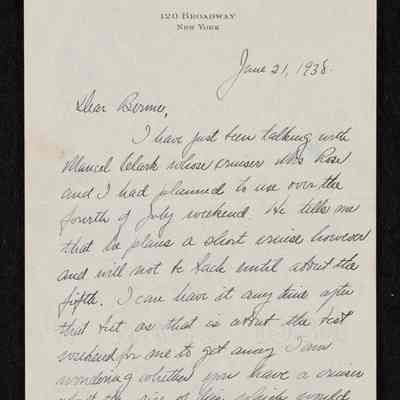 120 BROADWAY
NEW YORK
June 21, 1938.
Dear Bermer,
I have just been talking with
Marcel Clark whose cruiser Mrs Rose
and I had planned to use over the
fourth of July weekend. He tells me
that he plans a short cruise however
and will not be back until about the
fifth. I can have it any time after
that but as that is about the best
weekend for me to get away I am
wondering whether you have a cruiser
about the size of his which would